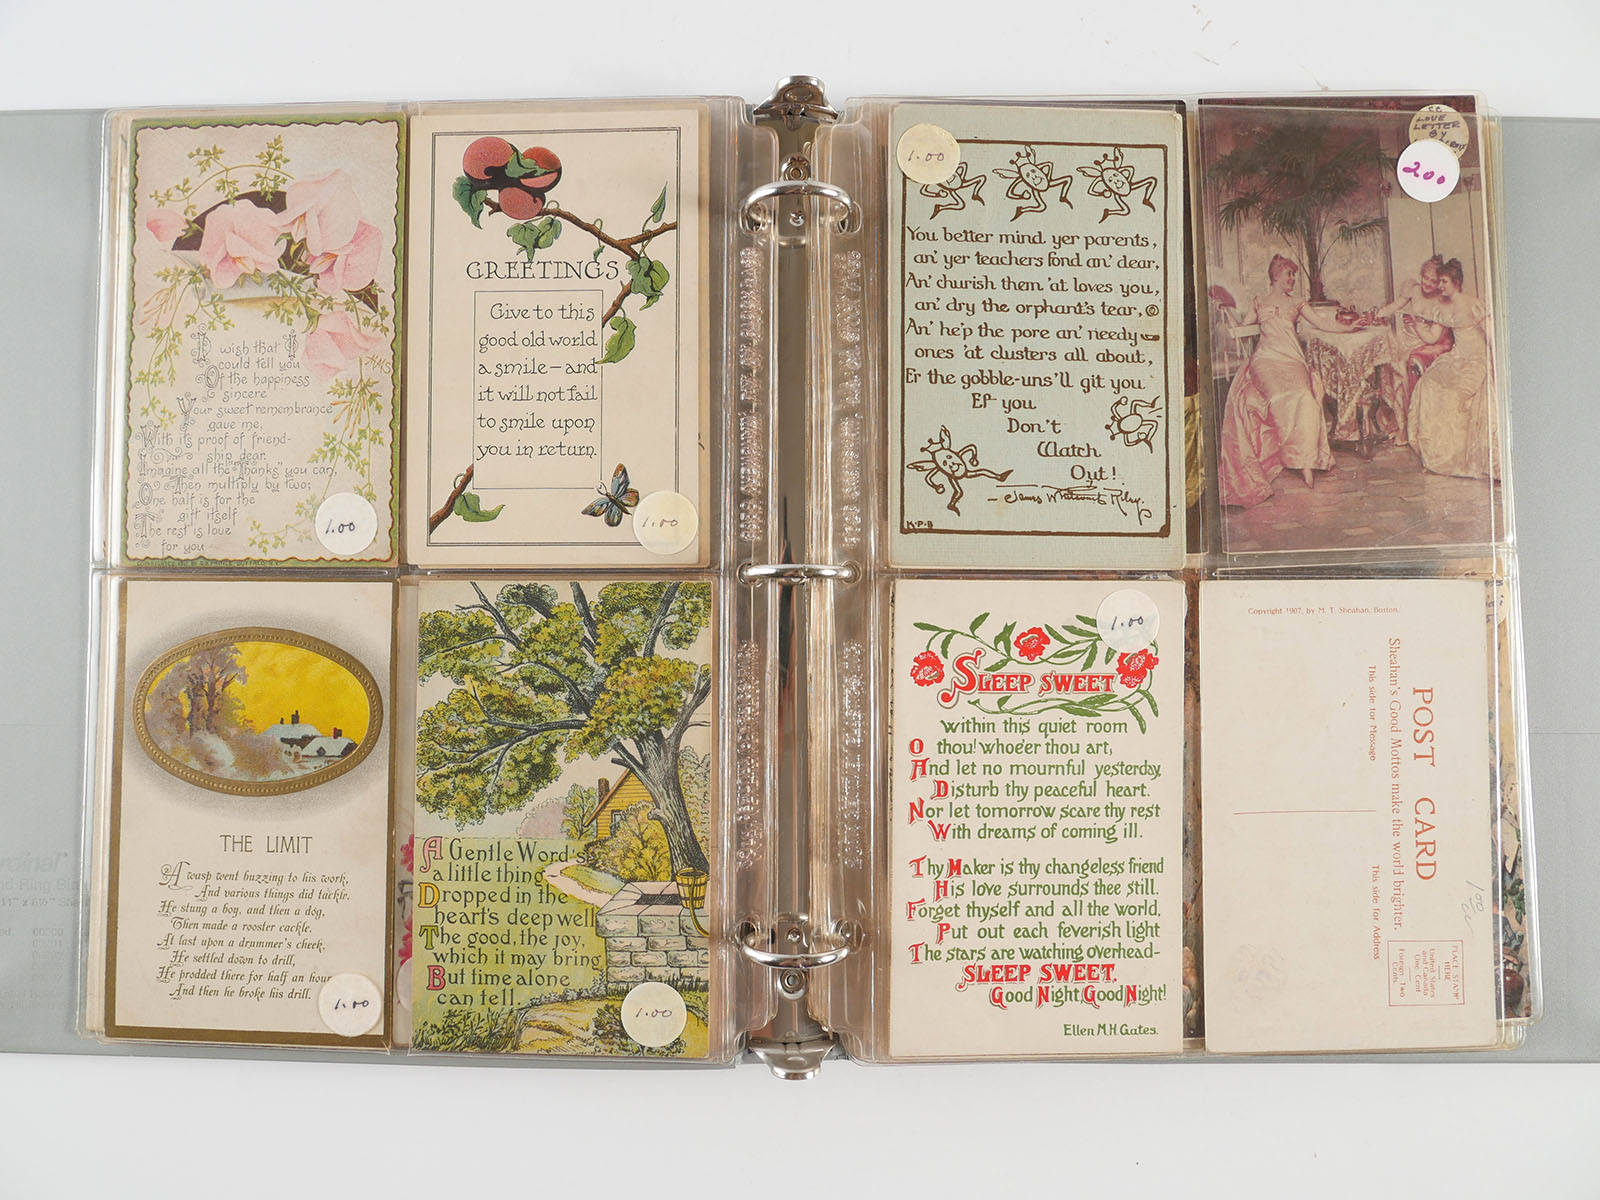 I wish that I
could tell you
Of the happiness
sincere
Your sweet remembrance
gave me,
With its proof of friend-
ship dear.
Imagine all the "Thanks" you can,
Then multiply by two;
One half is for the
gift itself
The rest is love
for you
1.00
GREETINGS
Give to this
good old world
a smile — and
it will not fail
to smile upon
you in return.
1.00
THE LIMIT
A wasp went buzzing to his work,
And various things did tackle.
He stung a boy, and then a dog,
Then made a rooster cackle.
At last upon a drummer's cheek,
He settled down to drill,
He prodded there for half an hour
And then he broke his drill.
1.00
A Gentle Word's
a little thing
Dropped in the
heart's deep well
The good, the joy,
which it may bring
But time alone
can tell.
1.00
1.00
You better mind yer parents,
an' yer teachers fond an' dear,
An' churish them 'at loves you,
an' dry the orphant's tear,
An' he'p the pore an' needy
ones 'at clusters all about,
Er the gobble-uns'll git you
Ef you
Don't
Watch
Out!
- James Whitcomb Riley.
K·P·B
LOVE
LETTER
BY
2.00
1.00
SLEEP SWEET
Within this quiet room
O thou! whoe'er thou art,
And let no mournful yesterday,
Disturb thy peaceful heart.
Nor let tomorrow scare thy rest
With dreams of coming ill.
Thy Maker is thy changeless friend
His love surrounds thee still.
Forget thyself and all the world,
Put out each feverish light
The stars are watching overhead-
SLEEP SWEET.
Good Night Good Night!
Ellen M.H. Gates.
Copyright 1907, by M. T. Sheahan, Boston.
POST CARD
Sheahan's Good Mottos make the world brighter.
This side for Message
This side for Address
PLACE STAMP
HERE
United States
and Canada
One Cent
Foreign—Two
Cents.
1.00